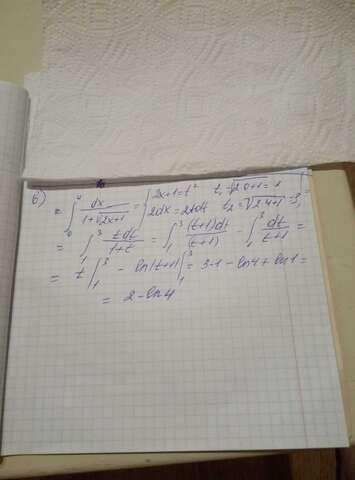 б) = ∫₀⁴ dx/(1+√(2x+1)) = { 2x+1=t² t₁=√(2·0+1)=1
2dx=2tdt t₂=√(2·4+1)=3 } =
= ∫₁³ tdt/(1+t) = ∫₁³ (t+1)dt/(t+1) - ∫₁³ dt/(t+1) =
= t |₁³ - ln|t+1| |₁³ = 3-1-ln4+ln1=
= 2-ln4